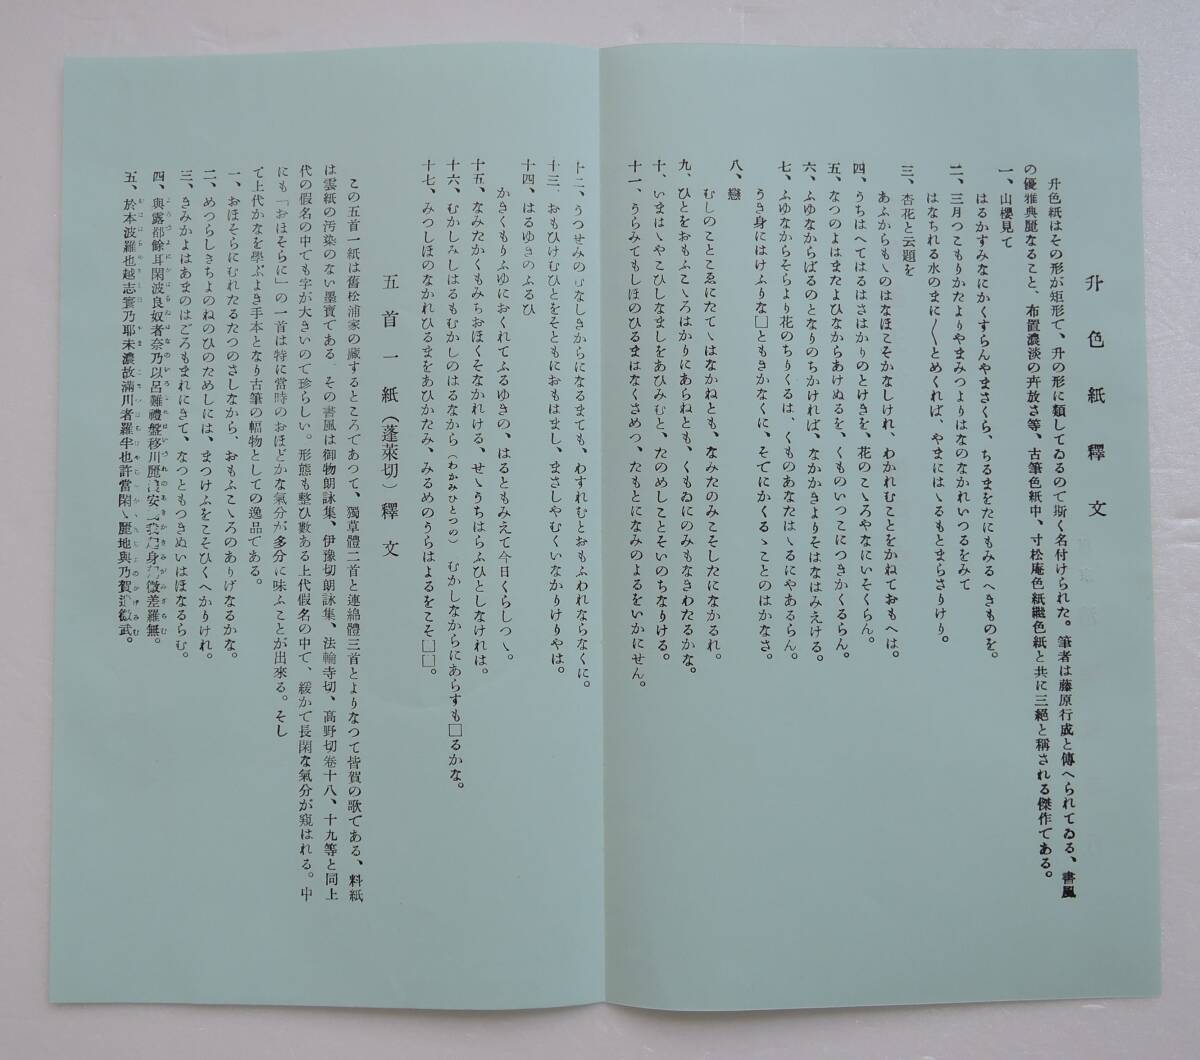 升色紙釋文
升色紙はその形が矩形で、升の形に類してゐるので斯く名付けられた。筆者は藤原行成と傳へられてゐる、書風
の優雅典麗なること、布置濃淡の奔放さ等、古筆色紙中、寸松庵色紙繼色紙と共に三絕と稱される傑作である。
一、山櫻見て
はるかすみなにかくすらんやまさくら、ちるまをたにもみるへきものを。
二、三月つこもりかたよりやまみつよりはなのなかれいつるをみて
はなちれる水のまに〱とめくれば、やまにはゝるもとまらさりけり。
三、杏花と云題を
あふからもゝのはなほこそかなしけれ、わかれむことをかねておもへは。
四、うちはへてはるはさはかりのとけきを、花のこゝろやなにいそくらん。
五、なつのよはまたよひなからあけぬるを、くものいつこにつきかくるらん。
六、ふゆなからばるのとなりのちかければ、なかかきよりそはなはみえける。
七、ふゆなからそらより花のちりくるは、くものあなたはゝるにやあるらん。
うき身にはけふりな□ともきかなくに、そてにかくるゝことのはかなさ。
八、戀
むしのことこゑにたてゝはなかねとも、なみたのみこそしたになかるれ。
九、ひとをおもふこゝろはかりにあらねとも、くもゐにのみもなきわたるかな。
十、いまはゝやこひしなましをあひみむと、たのめしことそいのちなりける。
十一、うらみてもしほのひるまはなくさめつ、たもとになみのよるをいかにせん。
十二、うつせみのむなしきからになるまても、わすれむとおもふわれならなくに。
十三、おもひけむひとをそともにおもはまし、まさしやむくいなかりけりやは。
十四、はるゆきのふるひ
かきくもりふゆにおくれてふるゆきの、はるともみえて今日くらしつゝ。
十五、なみたかくもみちおほくそなかれける、せゝうちはらふひとしなけれは。
十六、むかしみしはるもむかしのはるなから(わかみひとつの)むかしなからにあらすも□るかな。
十七、みつしほのなかれひるまをあひかたみ、みるめのうらはよるをこそ□□。
五首一紙(蓬萊切)釋文
この五首一紙は舊松浦家の藏するところであつて、獨草體二首と連綿體三首とよりなつて皆賀の歌である、料紙
は雲紙の汚染のない墨寶である。その書風は御物朗詠集、伊豫切朗詠集、法輪寺切、高野切卷十八、十九等と同上
代の假名の中でも字が大きいので珍らしい。形態も整ひ數ある上代假名の中で、緩かで長閑な氣分が窺はれる。中
にも「おほそらに」の一首は特に當時のおほどかな氣分が多分に味ふことが出來る。そし
て上代かなを學ぶよき手本となり古筆の幅物としての逸品である。
一、おほそらにむれたるたつのさしなから、おもふこゝろのありげなるかな。
二、めつらしきちよのねのひのためしには、まつけふをこそひくへかりけれ。
三、きみかよはあまのはごろもまれにきて、なつともつきぬいはほならるらむ。
四、與露邵餘耳閑波良奴者奈乃以呂難禮盤移川麗 安 身 微差羅無。
五、於本波羅也越志實乃耶未濃故滿川者羅半也許當閑ゝ麗地與乃賀遣微武。